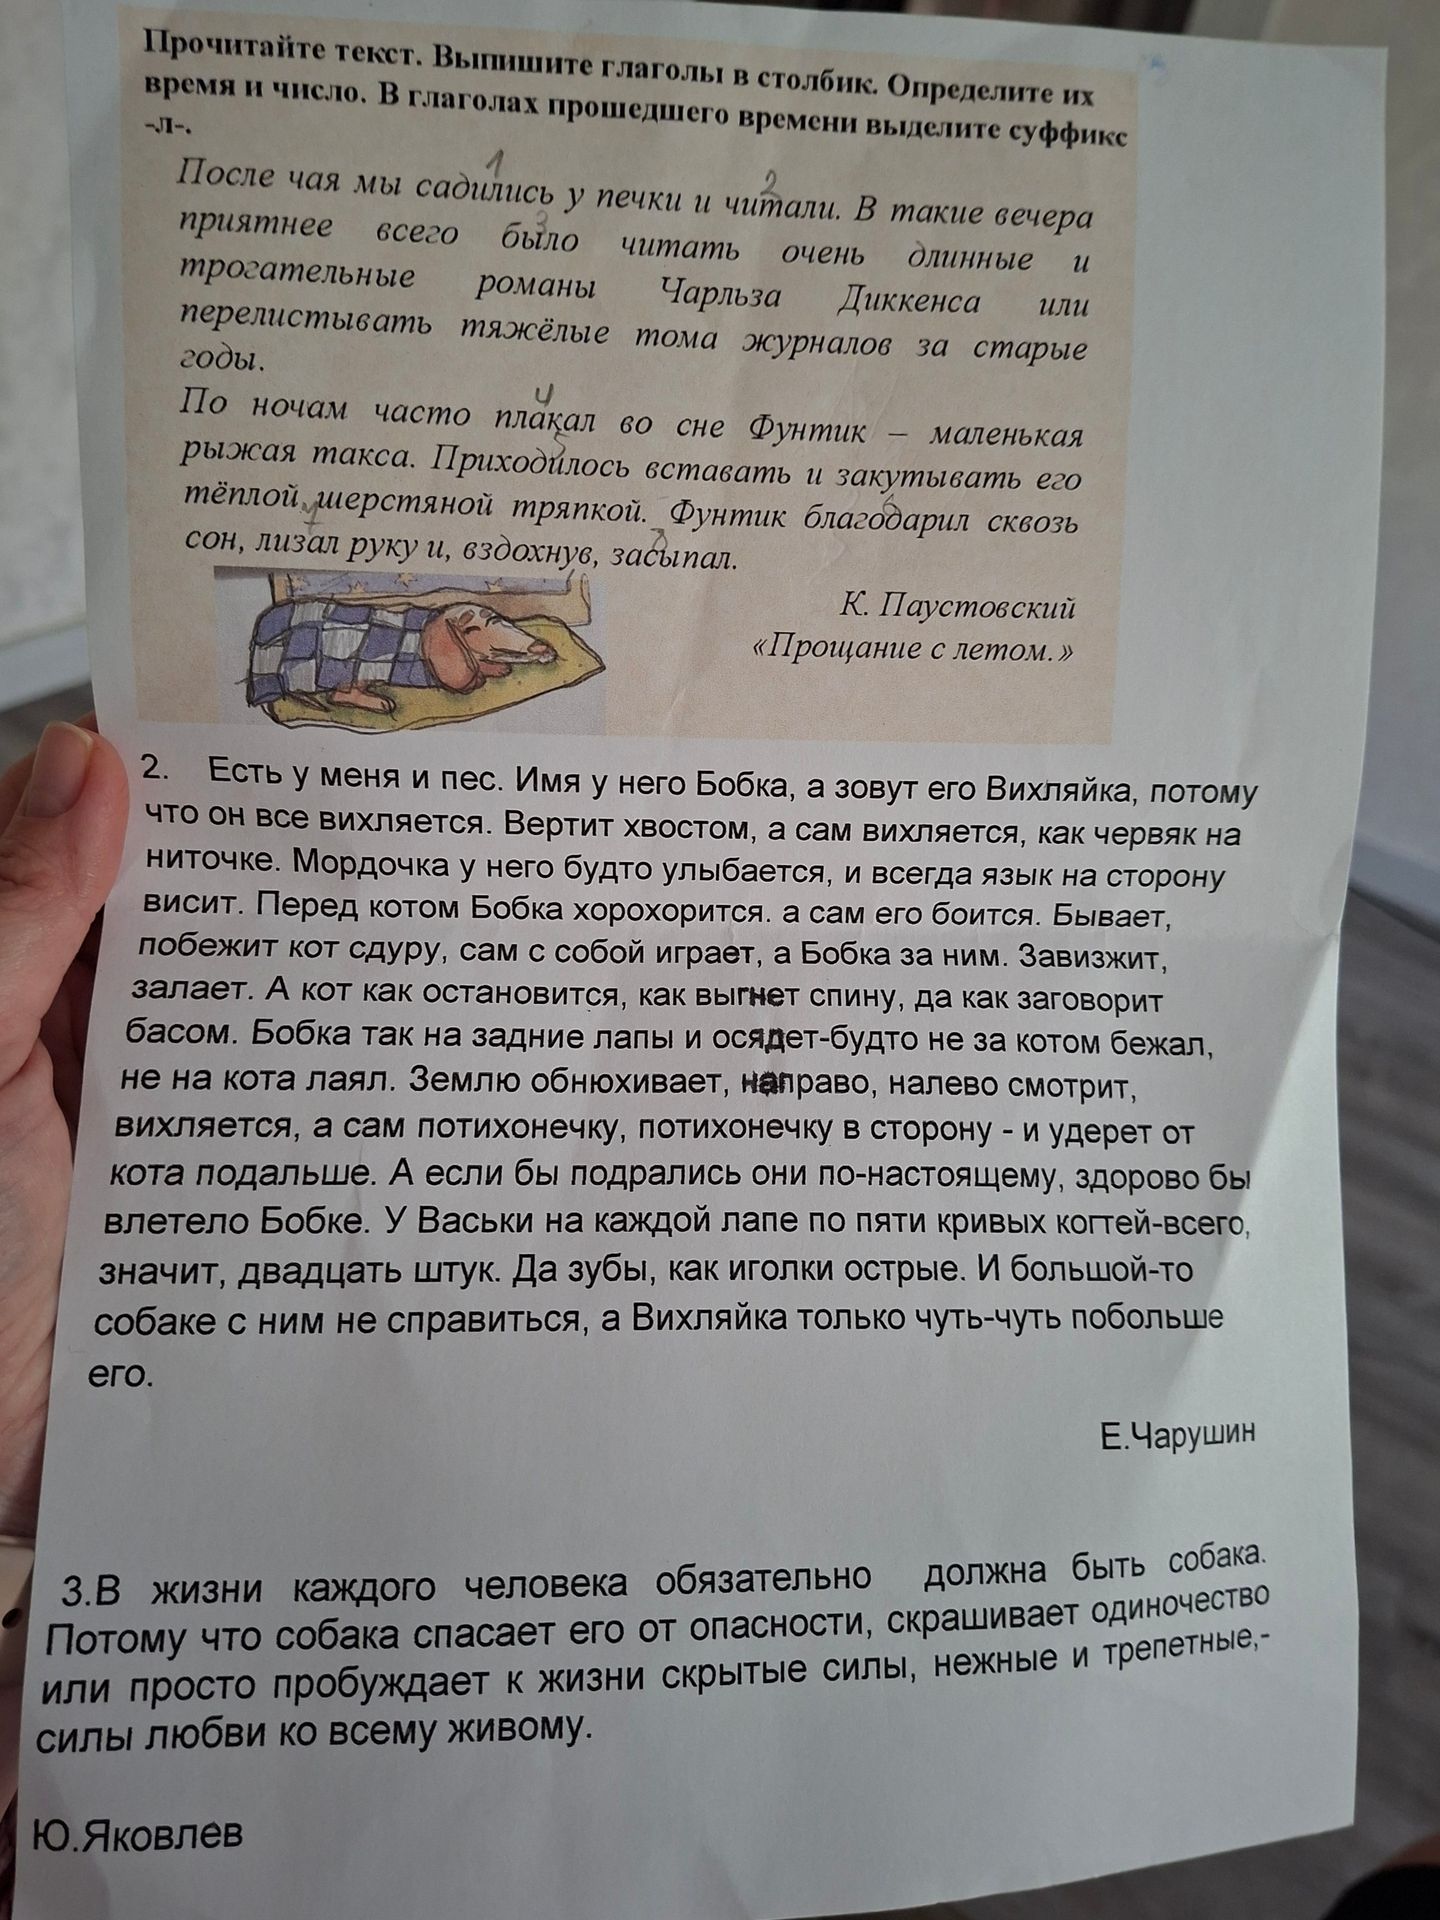 Прочитайте текст. Выпишите глаголы в столбик. Определите их
время и число. В глаголах прошедшего времени выделите суффикс
-л-.
1 2
После чая мы садились у печки и читали. В такие вечера
3
приятнее всего было читать очень длинные и
трогательные романы Чарльза Диккенса или
перелистывать тяжёлые тома журналов за старые
годы.
4
По ночам часто плакал во сне Фунтик – маленькая
5
рыжая такса. Приходилось вставать и закутывать его
6
тёплой шерстяной тряпкой. Фунтик благодарил сквозь
7
сон, лизал руку и, вздохнув, засыпал.
К. Паустовский
«Прощание с летом.»
2. Есть у меня и пес. Имя у него Бобка, а зовут его Вихляйка, потому
что он все вихляется. Вертит хвостом, а сам вихляется, как червяк на
ниточке. Мордочка у него будто улыбается, и всегда язык на сторону
висит. Перед котом Бобка хорохорится. а сам его боится. Бывает,
побежит кот сдуру, сам с собой играет, а Бобка за ним. Завизжит,
залает. А кот как остановится, как выгнет спину, да как заговорит
басом. Бобка так на задние лапы и осядет-будто не за котом бежал,
не на кота лаял. Землю обнюхивает, направо, налево смотрит,
вихляется, а сам потихонечку, потихонечку в сторону - и удерет от
кота подальше. А если бы подрались они по-настоящему, здорово бы
влетело Бобке. У Васьки на каждой лапе по пяти кривых когтей-всего,
значит, двадцать штук. Да зубы, как иголки острые. И большой-то
собаке с ним не справиться, а Вихляйка только чуть-чуть побольше
его.
Е.Чарушин
3.В жизни каждого человека обязательно должна быть собака.
Потому что собака спасает его от опасности, скрашивает одиночество
или просто пробуждает к жизни скрытые силы, нежные и трепетные,-
силы любви ко всему живому.
Ю.Яковлев